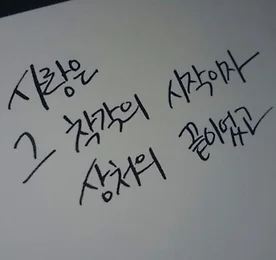 사랑은
그 착각의 시작이자
상처의 끝이었고